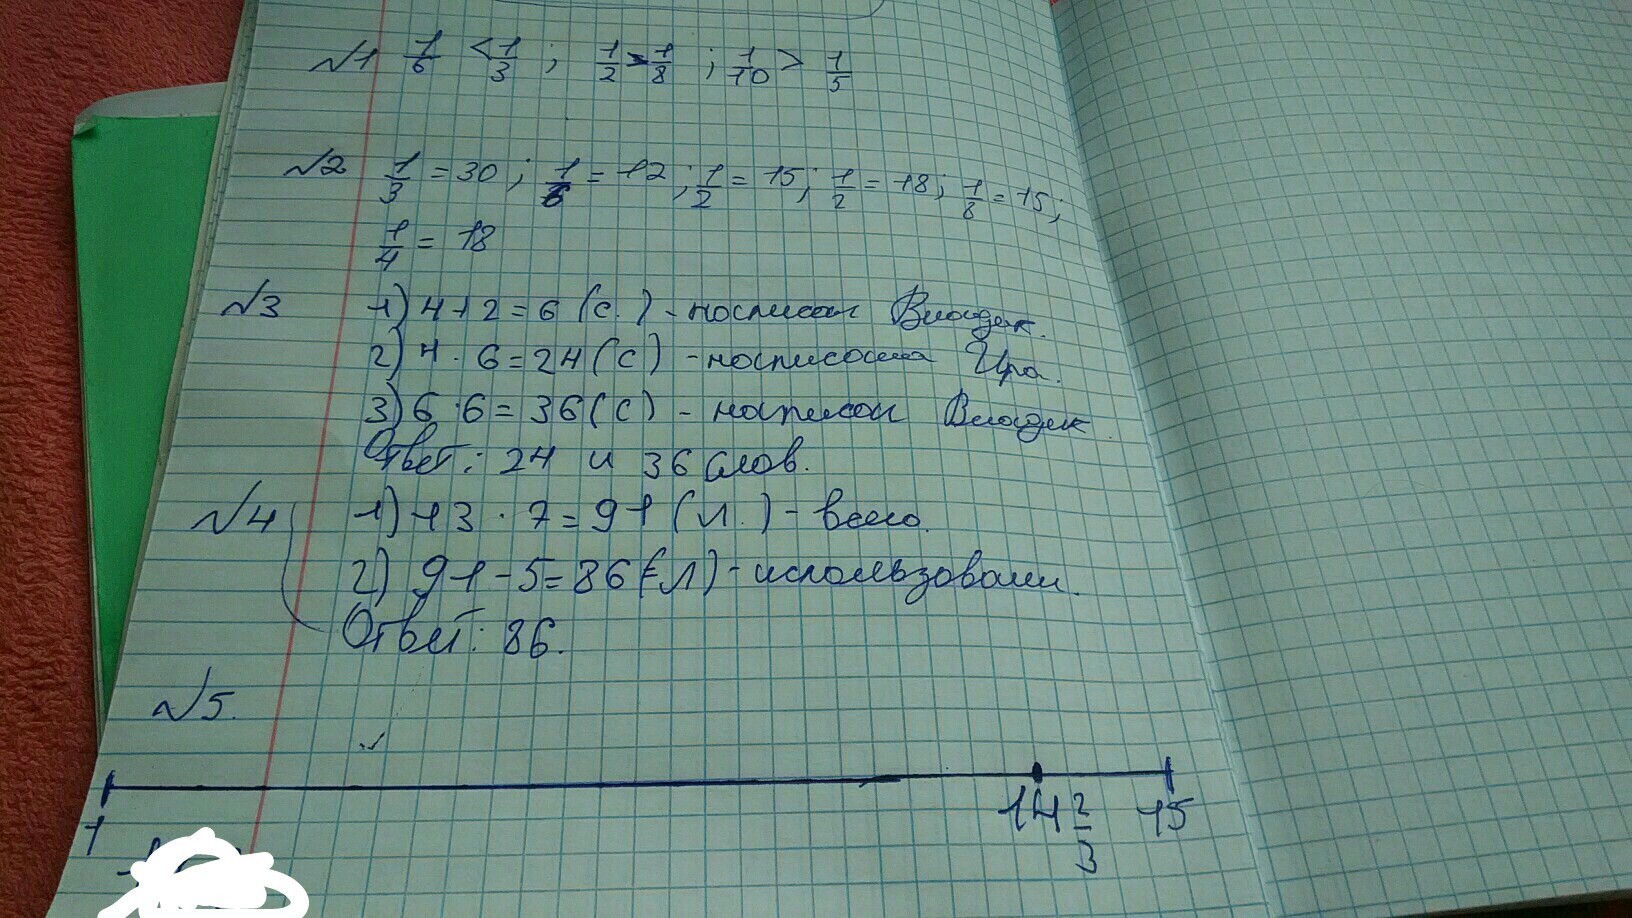 №1 1/6 < 1/3 ; 1/2 > 1/8 ; 1/10 > 1/5
№2 1/3 = 30 ; 1/6 = 12 ; 1/2 = 15 ; 1/2 = 18 ; 1/8 = 15 ;
1/4 = 18
№3 1) 4+2=6 (с.) - написал Владик.
2) 4 · 6 = 24 (с) - написала Ира.
3) 6 · 6 = 36 (с) - написал Владик.
Ответ: 24 и 36 слов.
№4 1) 13 · 7 = 91 (л.) - всего.
2) 91 - 5 = 86 (л) - использовали.
Ответ: 86.
№5.
1 14 2/3 15